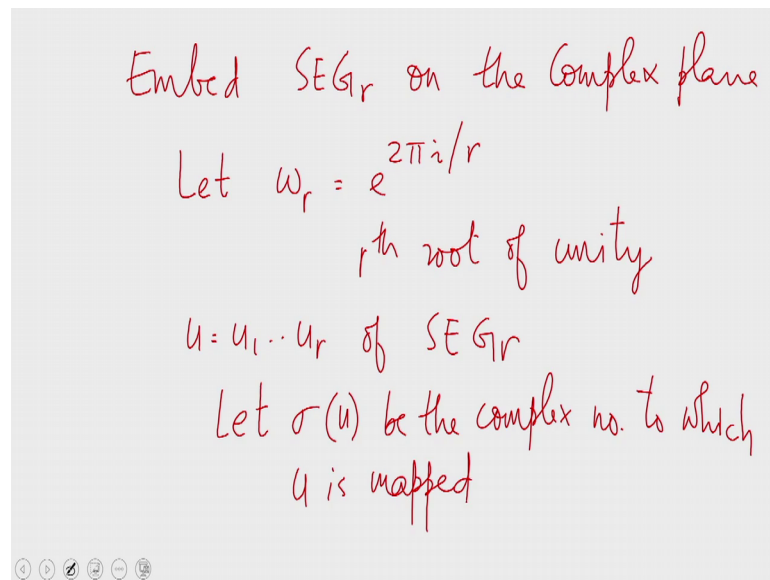 Embed SEGᵣ on the Complex plane
Let ωᵣ = e^{2πi/r}
rth root of unity
u = u₁ .. uᵣ of SEGᵣ
Let σ(u) be the complex no. to which
u is mapped